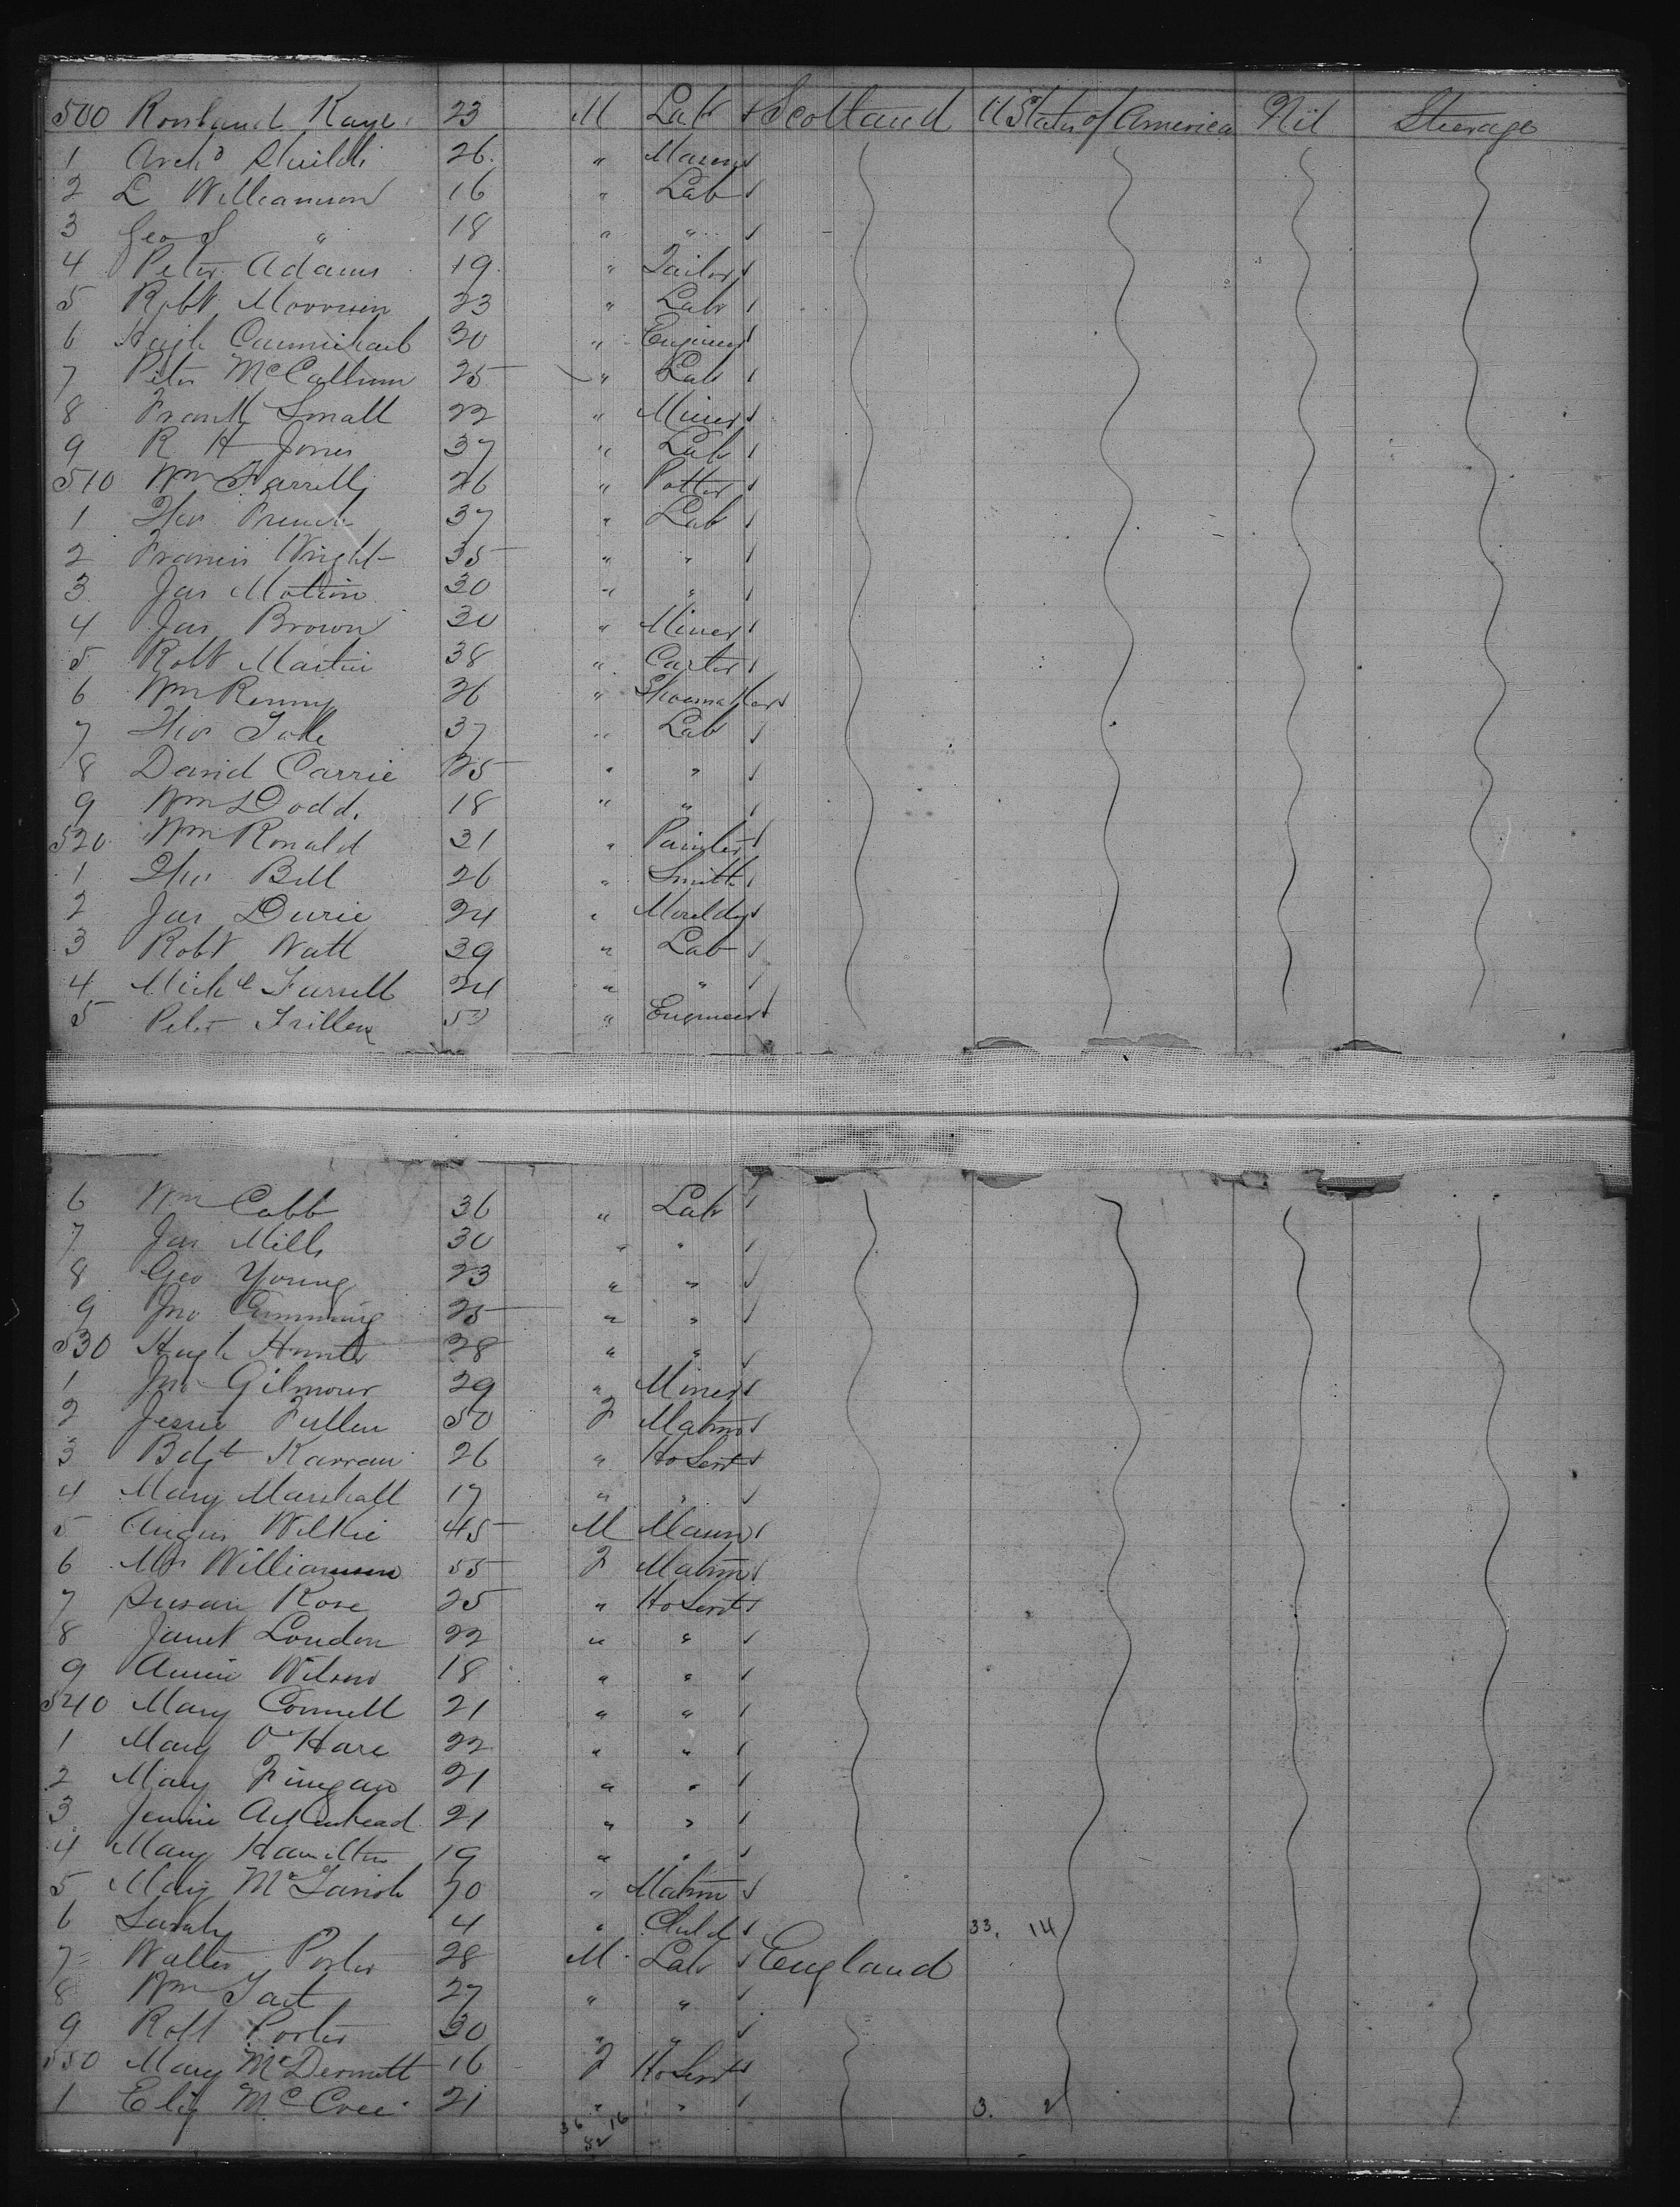 500 Rowland Kaye 23 M Lab Scotland U States of America Nil Steerage
1 Archd Shields 26 " Mason
2 L Williamson 16 " Lab
3 Geo S " 18 " "
4 Peter Adams 19 " Tailor
5 Robt Morrison 23 " Lab
6 Hugh Carmichael 30 " Engineer
7 Peter McCallum 25 " Lab
8 Frank Small 22 " Miner
9 R H Jones 37 " Lab
510 Wm Farrell 26 " Potter
1 Thos French 37 " Lab
2 Francis Wright 35 " "
3 Jas Motion 30 " "
4 Jas Brown 30 " Miner
5 Robt Martin 38 " Carter
6 Wm Renny 26 " Shoemaker
7 Thos 37 " Lab
8 David Carrie 25 " "
9 Wm Dodd 18 " "
520 Wm Ronald 31 " Painter
1 Thos Bell 26 " Smith
2 Jas Durie 24 " Moulder
3 Robt Watt 39 " Lab
4 Michl Farrell 24 " "
5 Peter " Engineer
6 Wm Cobb 36 " Lab
7 Jas Mills 30 " "
8 Geo Young 23 " "
9 Jno Cumming 25 " "
530 Hugh Hunter 28 " "
1 Jno Gilmour 29 " Miner
2 Jessie Fullen 50 F Matron
3 Bdgt Karran 26 " Ho Servt
4 Mary Marshall 17 " "
5 Angus Wilkie 45 M Mason
6 Mrs Williamson 55 F Matron
7 Susan Rose 25 " Ho Servt
8 Janet London 22 " "
9 Annie Wilson 18 " "
540 Mary Connell 21 " "
1 Mary O'Hare 22 " "
2 Mary Finegan 21 " "
3 Jennie Aikenhead 21 " "
4 Mary Hamilton 19 " "
5 Mary McTavish 70 " Matron
6 Sarah 4 " Child 33. 14
7 Walter Porter 28 M Lab England
8 Wm Tait 27 " "
9 Robt Porter 30 " "
550 Mary McDermott 16 F Ho Servt
1 Eliz McCree 21 " " 3. 2
36 16
52